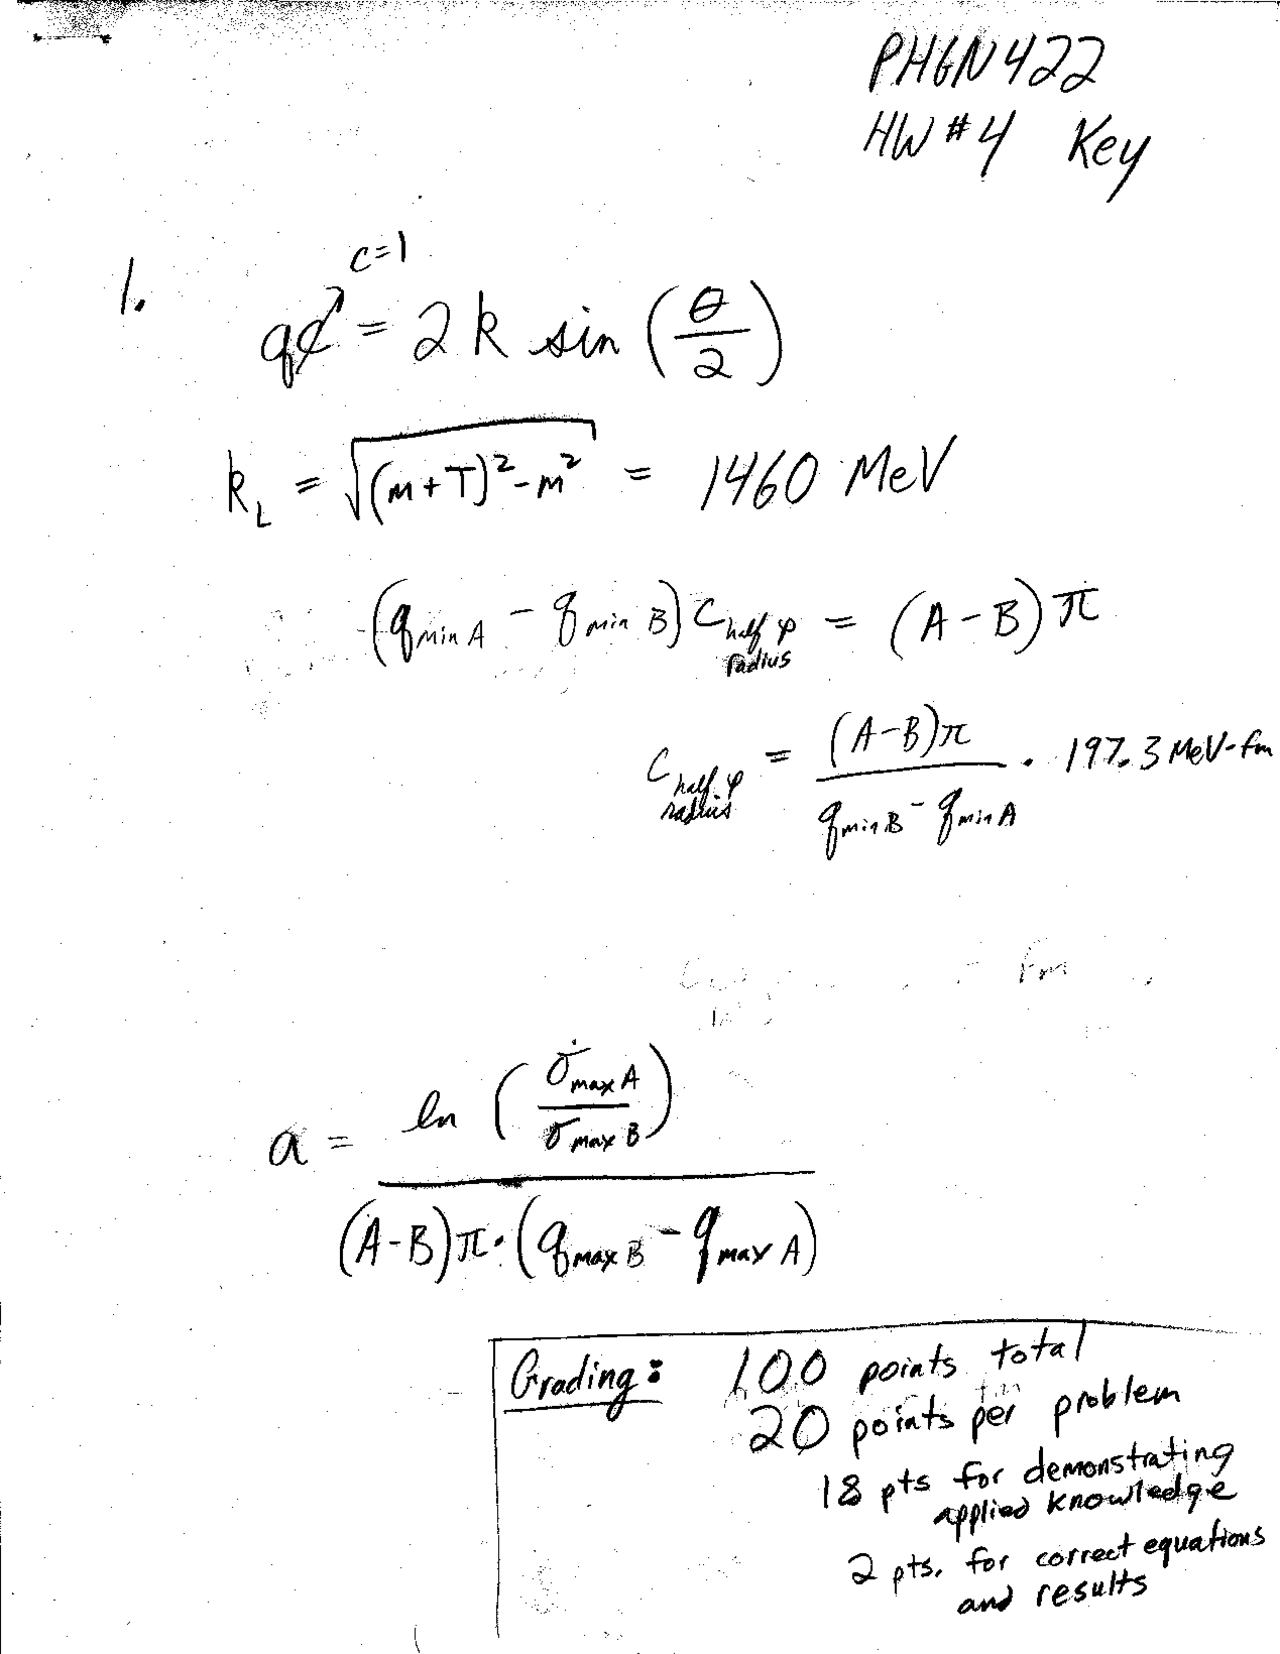 PHGN422
HW #4 Key
c=1
1.
qc = 2 k sin (θ/2)
k_L = √((m+T)²-m²) = 1460 MeV
(q_min A - q_min B) C_half ρ radius = (A-B) π
C_half ρ radius = (A-B)π / (q_min B - q_min A) · 197.3 MeV-fm
fm
a = ln (σ_max A / σ_max B) / ((A-B)π · (q_max B - q_max A))
Grading: 100 points total
20 points per problem
18 pts for demonstrating
applied knowledge
2 pts. for correct equations
and results